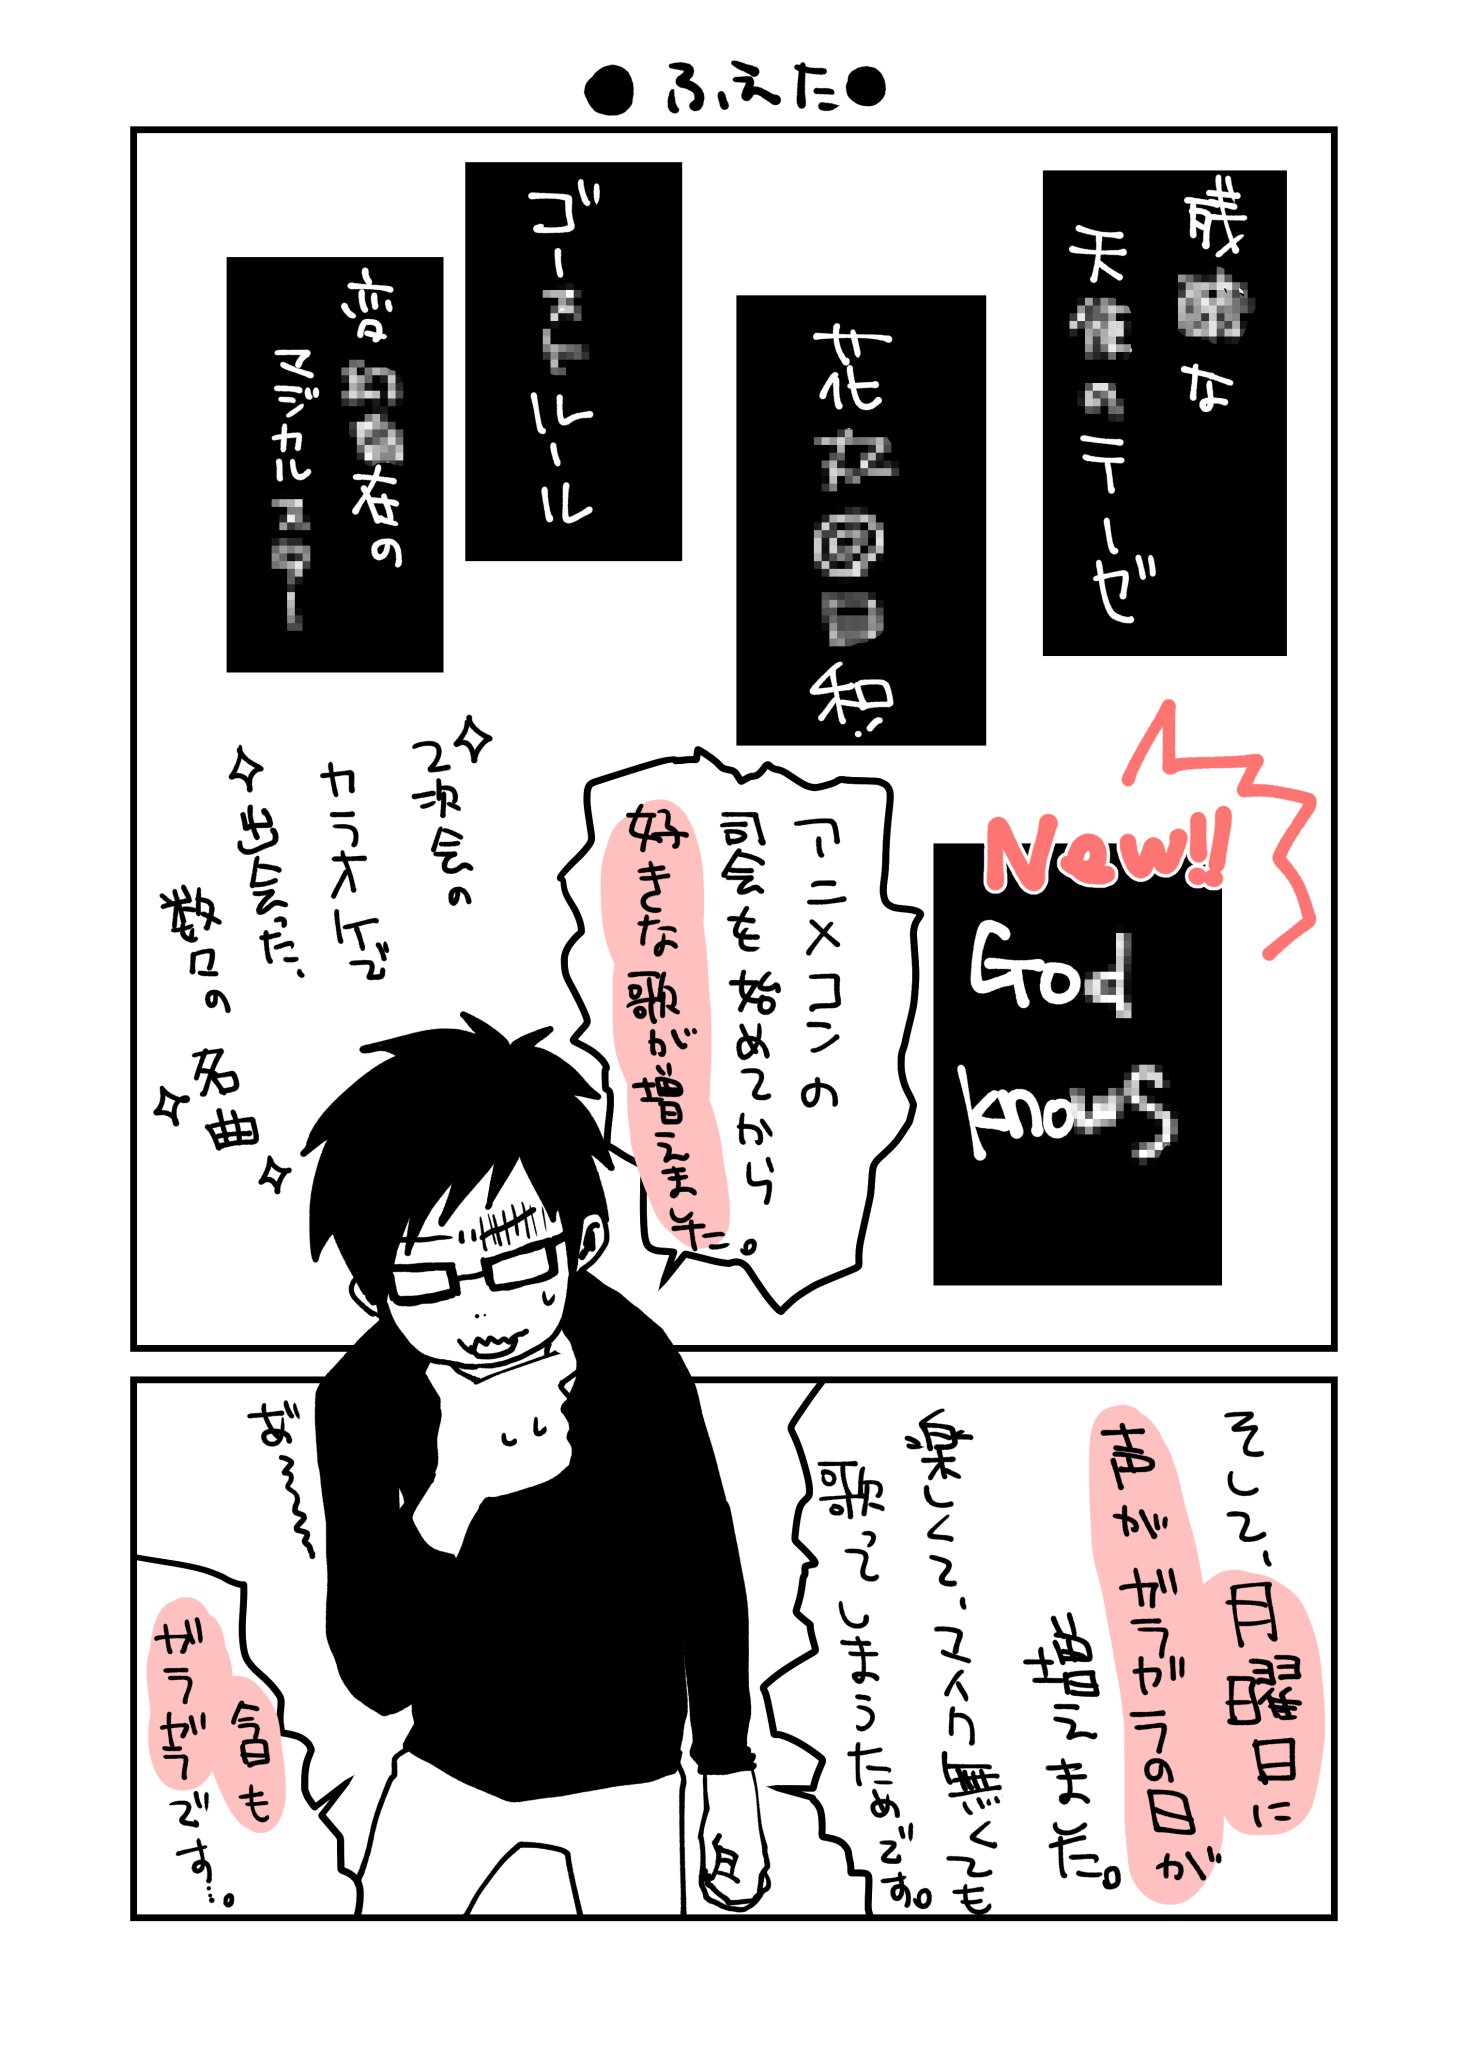 ●ふえた●
残な
天のテーゼ
花和!!
ゴーストルール
変幻在の
マジカルスター
New!!
God
knows
アニメコンの
司会を始めてから
好きな歌が増えました。
2次会の
カラオケで
出会った、
数々の名曲
そして、月曜日に
声がガラガラの日が
増えました。
楽しくて、マイク無くても
歌ってしまうためです。
あ゛〜〜〜
今日も
ガラガラです…。